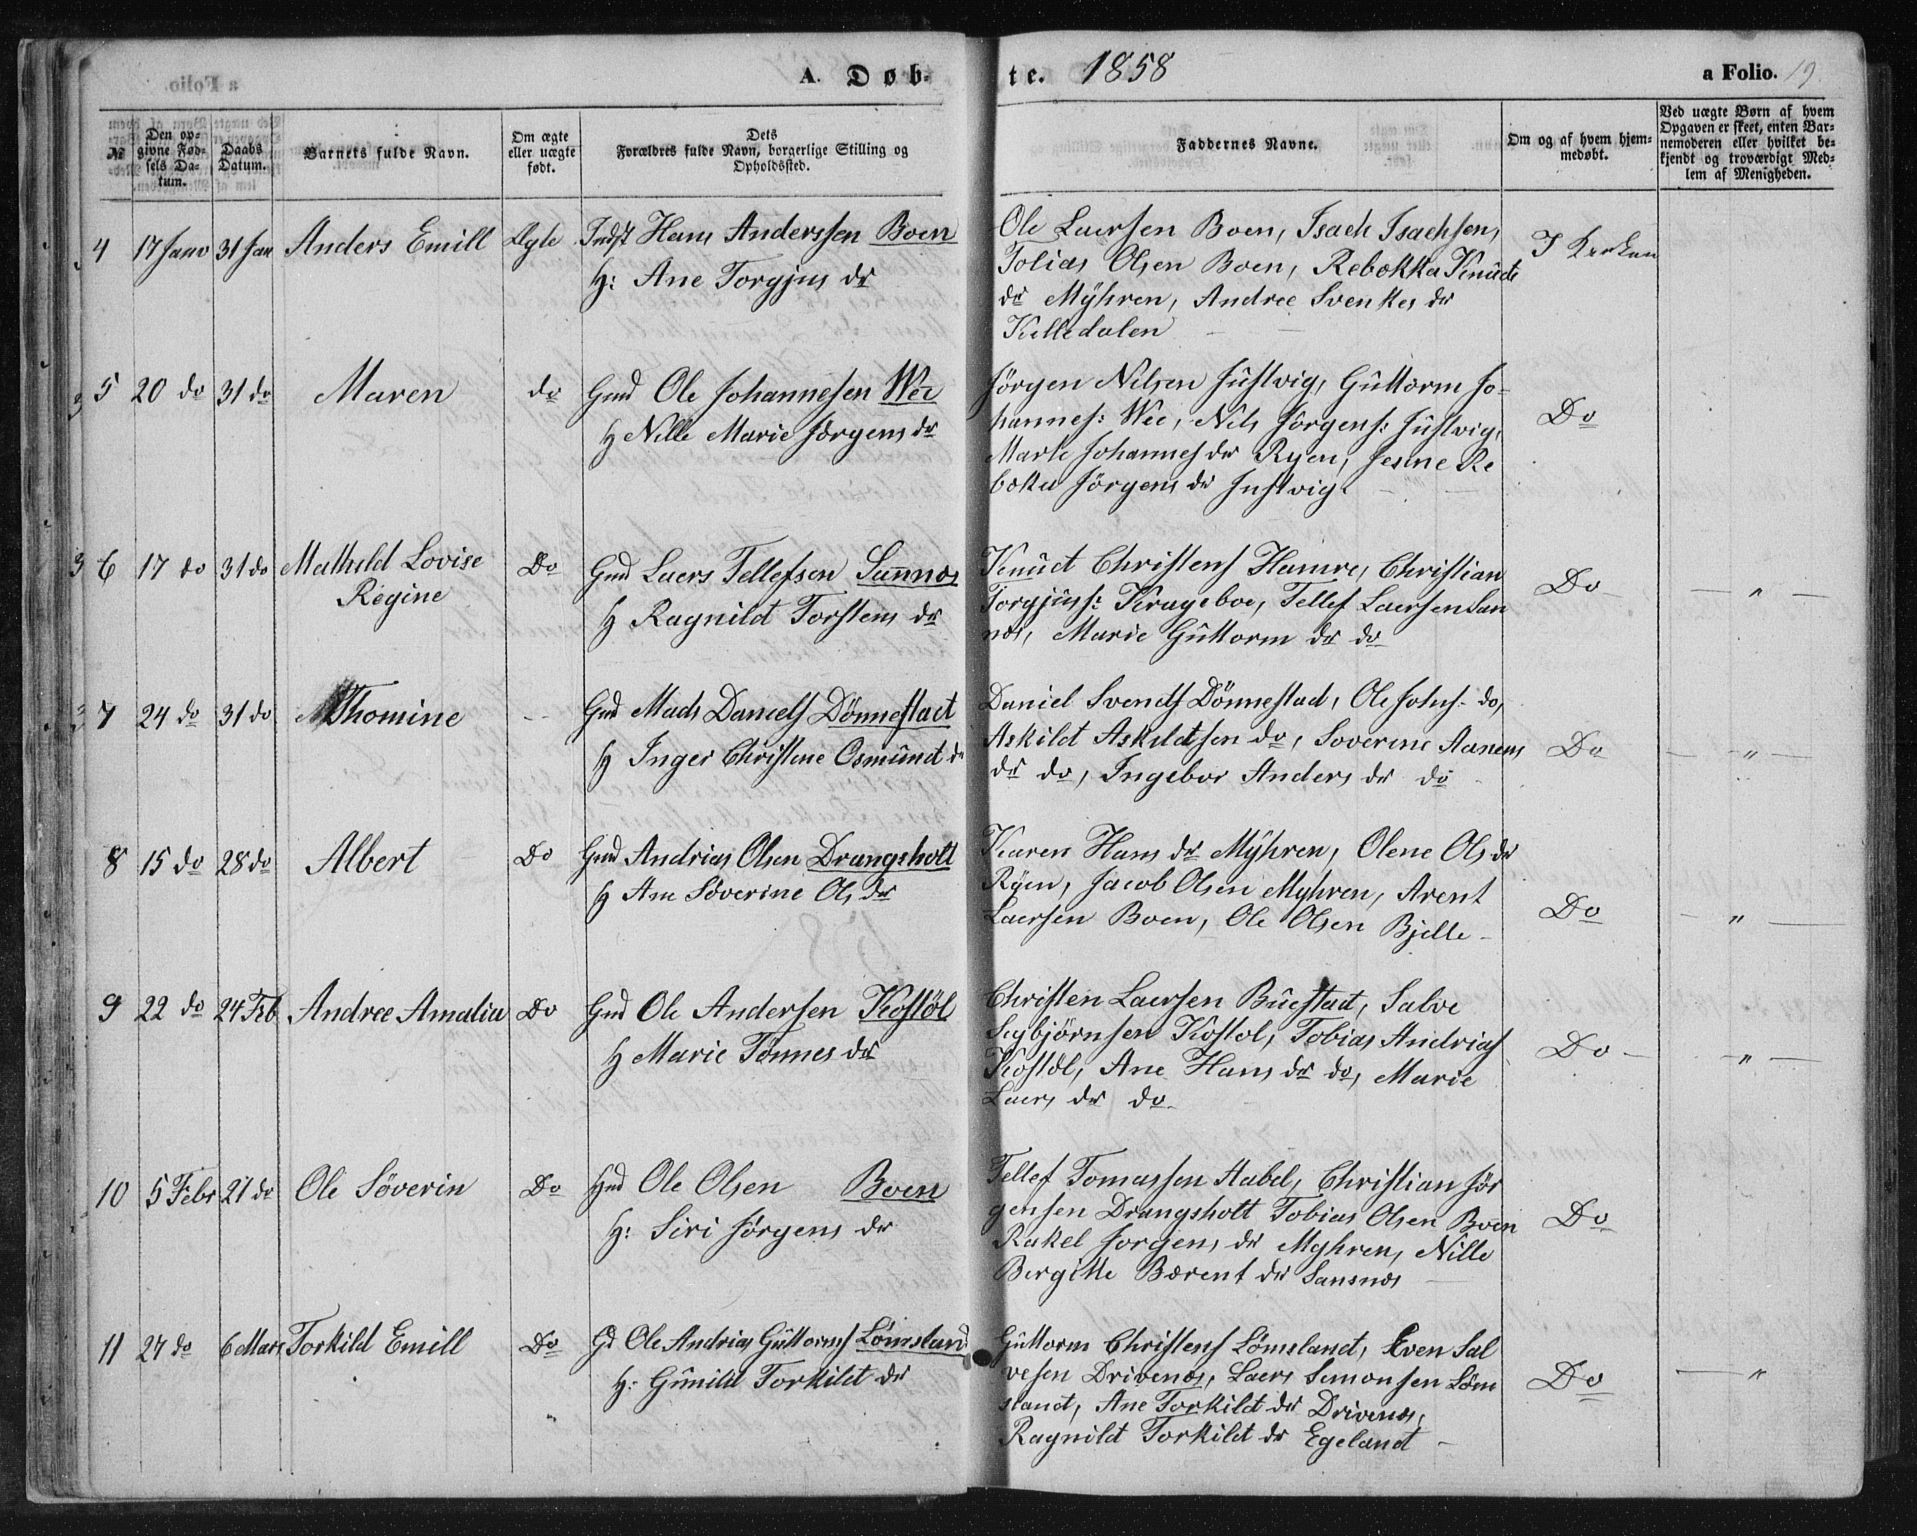 A. Døb-
te. 1858
a Folio. 19.
№
Den op-
givne Fød-
sels Da-
tum.
Daabs
Datum.
Barnets fulde Navn.
Om ægte
eller uægte
født.
Dets
Forældres fulde Navn, borgerlige Stilling og
Opholdssted.
Faddernes Navne.
Om og af hvem hjem-
medøbt.
Ved uægte Børn af hvem
Opgaven er skeet, enten Bar-
nemoderen eller hvilket be-
kjendt og troværdigt Med-
lem af Menigheden.
4 17 Janv 31 Jan Anders Emill Ægte Indst Hans Anderssen Boen
H: Ane Torgjus dr
Ole Laersen Boen, Isach Isachsen,
Tobias Olsen Boen, Rebekka Knuds
dr Myhren, Andree Svenkes dr
Kelledalen
I Kirken
5 20 do 31 do Maren do Gmd Ole Johannesen Wee
H Nille Marie Jørgens dr
Jörgen Nilsen Justvig, Guttorm Jo-
hannes: Wee, Nils Jörgens: Justvig,
Marte Johannes dr Ryen, Jesine Re
beka Jörgens dr Justvig
Do
6 17 do 31 do Mathild Lovise
Regine
Do Gmd Laers Tellefsen Sannæs
H Ragnild Torstens dr
Knudt Christens Hamre, Christian
Torgjuss: Krageboe, Tellef Laersen San
næs, Marie Guttorm dr do
Do — " —
7 24 do 31 do Thomine - Gmd Mads Daniels Dönnestadt
H Inger Christene Osmund dr
Daniel Svends Dönnestad, Ole Johs: do,
Askildt Askildtsen do, Soverine Aanens
dr do, Ingebor Anders dr do
Do — " —
8 15 do 28 do Albert Do Gmd Andrias Olsen Drangsholt
H Ane Söverine Ols dr
Karen Hans dr Myhren, Olene Ols dr
Ryen, Jacob Olsen Myhren, Arent
Laersen Boen, Ole Olsen Bjelle
Do — " —
9 22 do 24 Feb Andree Amalia Do Gmd Ole Andersen Kostöl
H Marie Tönnes dr
Christen Laersen Buestad, Salve
Segbjørnsen Kostol, Tobias Andrias
Kostöl, Ane Hans dr do, Marie
Laers dr do
Do — " —
10 5 Febr 21 do Ole Söverin Do Hmd Ole Olsen Boen
H: Siri Jörgens dr
Tellef Tomassen Aabel, Christian Jör
gensen Drangsholt Tobias Olsen Boen
Rakel Jorgens dr Myhren, Nille
Bergitte Bærent dr Sansnæs
Do
11 27 do 6 Mars Torkild Emill Do Gd Ole Andrias Guttorms Lömsland
H: Gunild Torkildt dr
Guttorm Christens Lömslandt, Even Sal
vesen Drivenæs, Laers Simonsen Löm
slandt, Ane Torkildt dr Drivenæs,
Ragnildt Torkildt dr Egelandt
Do — "